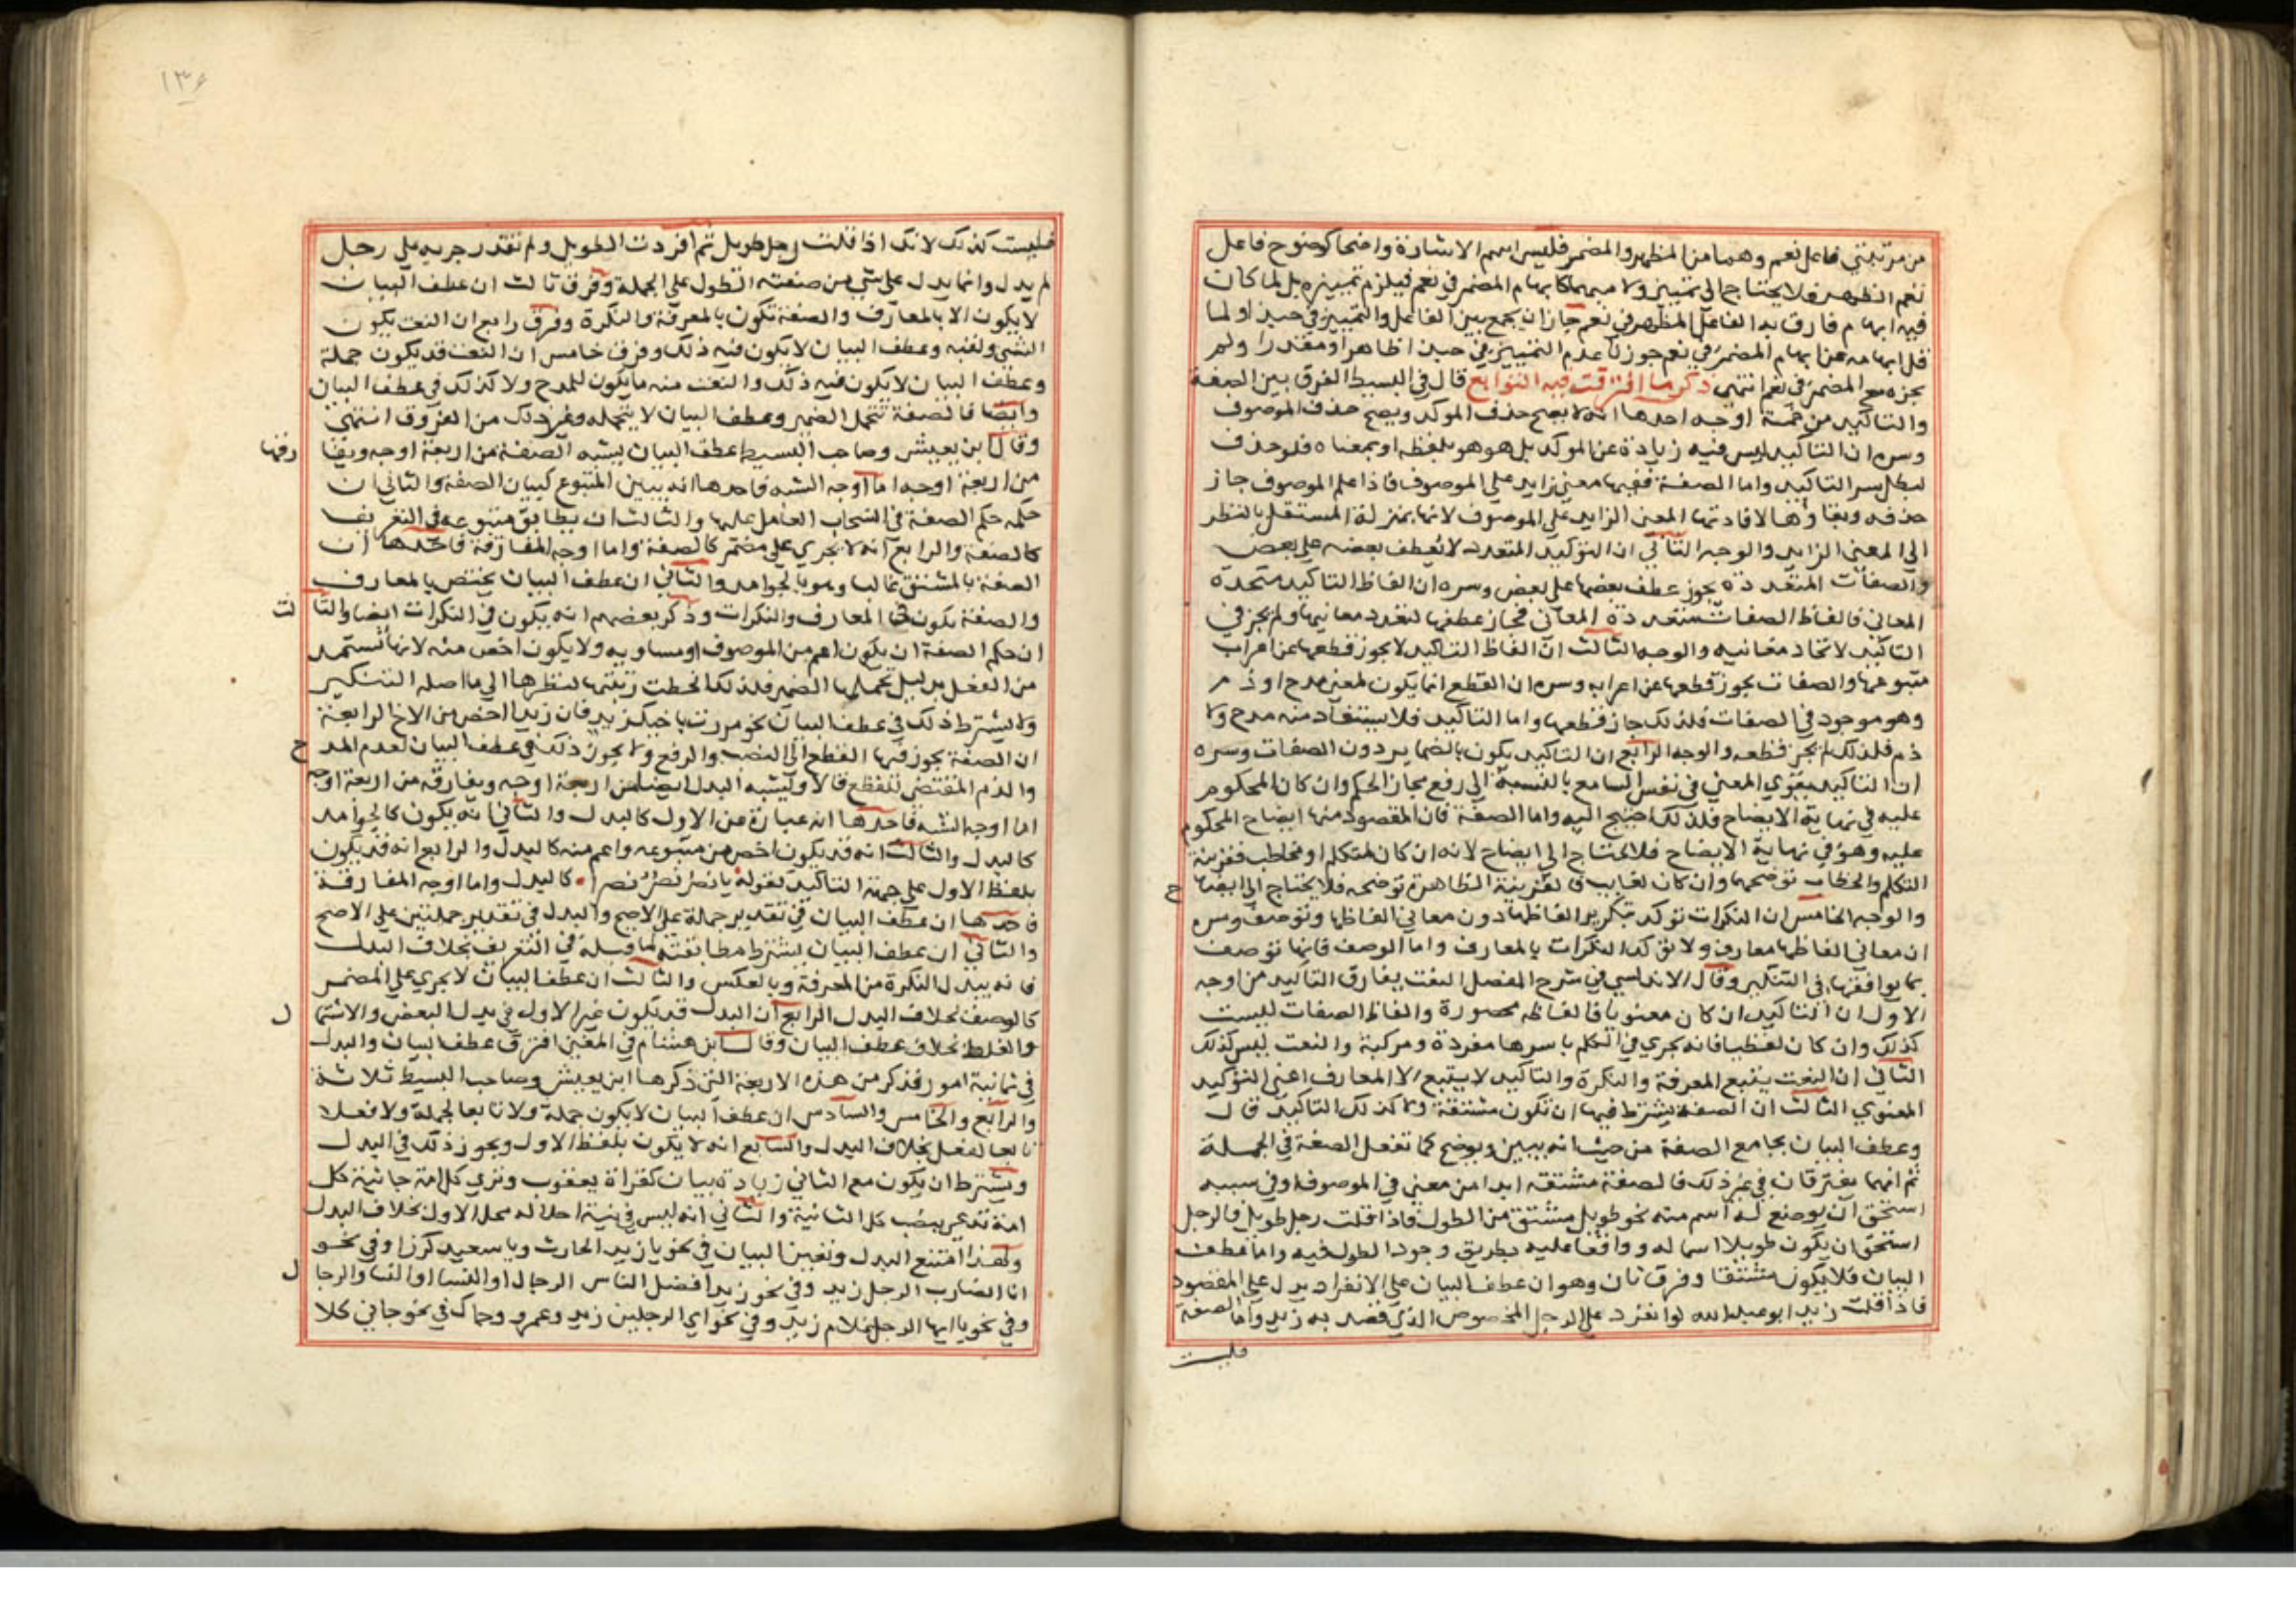 من مرتبتي فاعل نعم وهما من المظهر والمضمر فليس اسم الاشارة واضحا كوضوح فاعل
نعم الظهر فلا يحتاج الى تمييز ولا مبهما كابهام المضمر في نعم فيلزم تمييزه بل لما كان
فيه ابهام فارق به الفاعل المظهر في نعم جاز ان يجمع بين الفاعل والتمييز في حبذا ولما
قل ابهامه عن ابهام المضمر في نعم جوزنا عدم التمييز في حبذا ظاهرا ومقدرا ولم
يجزه مع المضمر في نعم انتهى ذكر ما افترقت فيه التوابع قال في البسيط الفرق بين الصفة
والتاكيد من خمسة اوجه احدها انه لا يصح حذف الموكد ويصح حذف الموصوف
وسره ان التاكيد ليس فيه زيادة عن الموكد بل هو هو بلفظه او بمعناه فلو حذف
لبطل سر التاكيد واما الصفة ففيها معنى زايد على الموصوف فاذا علم الموصوف جاز
حذفه وبقاؤها لافادتها المعنى الزايد على الموصوف لانها بمنزلة المستقل بالنظر
الى المعنى الزايد والوجه الثاني ان التوكيد المتعدد لا يعطف بعضه على بعض
والصفات المتعددة يجوز عطف بعضها على بعض وسره ان الفاظ التاكيد متحدة
المعاني فالفاظ الصفات متعددة المعاني فجاز عطفها لتعدد معانيها ولم يجز في
التاكيد لاتحاد معانيه والوجه الثالث ان الفاظ التاكيد لا يجوز قطعها عن اعراب
متبوعها والصفات يجوز قطعها عن اعرابه وسره ان القطع انما يكون لمعنى مدح او ذم
وهو موجود في الصفات فلذلك جاز قطعها واما التاكيد فلا يستفاد منه مدح ولا
ذم فلذلك لم يجز قطعه والوجه الرابع ان التاكيد يكون بالضماير دون الصفات وسره
ان التاكيد يقوي المعنى في نفس السامع بالنسبة الى رفع مجاز الحكم وان كان المحكوم
عليه في نهاية الايضاح فلذلك احتيج اليه واما الصفة فان المقصود منها ايضاح المحكوم
عليه وهو في نهاية الايضاح فلا يحتاج الى ايضاح لانه ان كان لمتكلم او مخاطب فقرينة
التكلم والخطاب توضحها وان كان لغايب فالقرينة الظاهرة توضحه فلا يحتاج الى ايضا ح
والوجه الخامس ان النكرات توكد بتكرير الفاظها دون معاني الفاظها وتوصف وسره
ان معاني الفاظها معارف ولا توكد النكرات بالمعارف واما الوصف فانها توصف
بما يوافقها في التنكير وقال الاندلسي في شرح المفصل النعت يفارق التاكيد من اوجه
الاول ان التاكيد ان كان معنويا فالفاظه محصورة والفاظ الصفات ليست
كذلك وان كان لفظيا فانه يجري في الكلم باسرها مفردة ومركبة والنعت ليس كذلك
الثاني ان النعت يتبع المعرفة والنكرة والتاكيد لا يتبع الا المعارف اعني التوكيد
المعنوي الثالث ان الصفة يشترط فيها ان تكون مشتقة ولا كذلك التاكيد قال
وعطف البيان يجامع الصفة من حيث انه يبين ويوضح كما تفعل الصفة في الجملة
ثم انهما يفترقان في غير ذلك فالصفة مشتقة ابدا من معنى في الموصوف او في سببه
استحق ان يوضع له اسم منه نحو طويل مشتق من الطول فاذا قلت رجل طويل فالرجل
استحق ان يكون طويلا اسما له وواقعا عليه بطريق وجود الطول فيه واما عطف
البيان فلا يكون مشتقا وفرق ثان وهو ان عطف البيان على الانفراد يدل على المقصود
فاذا قلت زيد ابو عبد الله لو انفرد على الرجل المخصوص الذي قصد به زيد واما الصفة
فليست
١٣٤
فليست كذلك لانك اذا قلت رجل طويل ثم افردت الطويل ولم تقدر جريه على رجل
لم يدل وانما يدل على شي من صفته الطول على الجملة وفرق ثالث ان عطف البيان
لا يكون الا بالمعارف والصفة تكون بالمعرفة والنكرة وفرق رابع ان النعت يكون
الشي ولغيره وعطف البيان لا يكون فيه ذلك وفرق خامس ان النعت قد يكون جملة
وعطف البيان لا يكون فيه ذلك والنعت منه ما يكون للمدح ولا كذلك في عطف البيان
وايضا فالصفة تتحمل الضمير وعطف البيان لا يتحمله وغير ذلك من الفروق انتهى
وقال ابن يعيش وصاحب البسيط عطف البيان يشبه الصفة من اربعة اوجه ويفا رقها
من اربعة اوجه اما اوجه الشبه فاحدها انه يبين المتبوع كبيان الصفة والثاني ان
حكمه حكم الصفة في انسحاب العامل عليها والثالث ان يطابق متبوعه في التعريف
كالصفة والرابع انه لا يجري على مضمر كالصفة واما اوجه المفارقة فاحدها ان
الصفة بالمشتق غالبا وهو بالجوامد والثاني ان عطف البيان يختص بالمعارف
والصفة تكون في المعارف والنكرات وذكر بعضهم انه يكون في النكرات ايضا والثا لث
ان حكم الصفة ان يكون اعم من الموصوف او مساويه ولا يكون اخص منه لانها تستمد
من الفعل بدليل تحملها الضمير فلذلك انحطت رتبتها لنظرها الى ما اصله التنكير
ولا يشترط ذلك في عطف البيان نحو مررت باخيك زيد فان زيدا اخص من الاخ الرابعة
ان الصفة يجوز فيها القطع الى النصب والرفع ولا يجوز ذلك في عطف البيان لعدم المد ح
والذم المقتضي للقطع قالا ويشبه البدل ايضا من اربعة اوجه ويفارقه من اربعة اوجه
اما اوجه الشبه فاحدها انه عبارة عن الاول كالبدل والثاني انه يكون كالجوامد
كالبدل والثالث انه قد يكون اخص من متبوعه واعم منه كالبدل والرابع انه قد يكون
بلفظ الاول على جهة التاكيد كقوله يا نصر نصر نصرا كالبدل واما اوجه المفارقة
فاحدها ان عطف البيان في تقدير جملة على الاصح والبدل في تقدير جملتين على الاصح
والثاني ان عطف البيان يشترط مطابقته لما قبله في التعريف بخلاف البدل
فانه يبدل النكرة من المعرفة وبالعكس والثالث ان عطف البيان لا يجري على المضمر
كالوصف بخلاف البدل الرابع ان البدل قد يكون غير الاول في بدل البعض والاشتما ل
والغلط بخلاف عطف البيان وقال ابن هشام في المغني افترق عطف البيان والبدل
في ثمانية امور فذكر من هذه الاربعة التي ذكرها ابن يعيش وصاحب البسيط ثلاثة
والرابع والخامس والسادس ان عطف البيان لا يكون جملة ولا تابعا لجملة ولا فعلا
تابعا لفعل بخلاف البدل والسابع انه لا يكون بلفظ الاول ويجوز ذلك في البدل
ويشترط ان يكون مع الثاني زيادة بيان كقراة يعقوب وترى كل امة جاثية كل
امة تدعى بنصب كل الثانية والثاني انه ليس في نية احلاله محل الاول بخلاف البدل
ولهذا امتنع البدل وتعين البيان في نحو يا زيد الحارث ويا سعيد كرزا وفي نحو
انا الضارب الرجل زيد وفي نحو زيد افضل الناس الرجال او النسا او النسا والرجا ل
وفي نحو يا ايها الرجل غلام زيد وفي نحو اي الرجلين زيد وعمرو وجاك في نحو جاني كلا